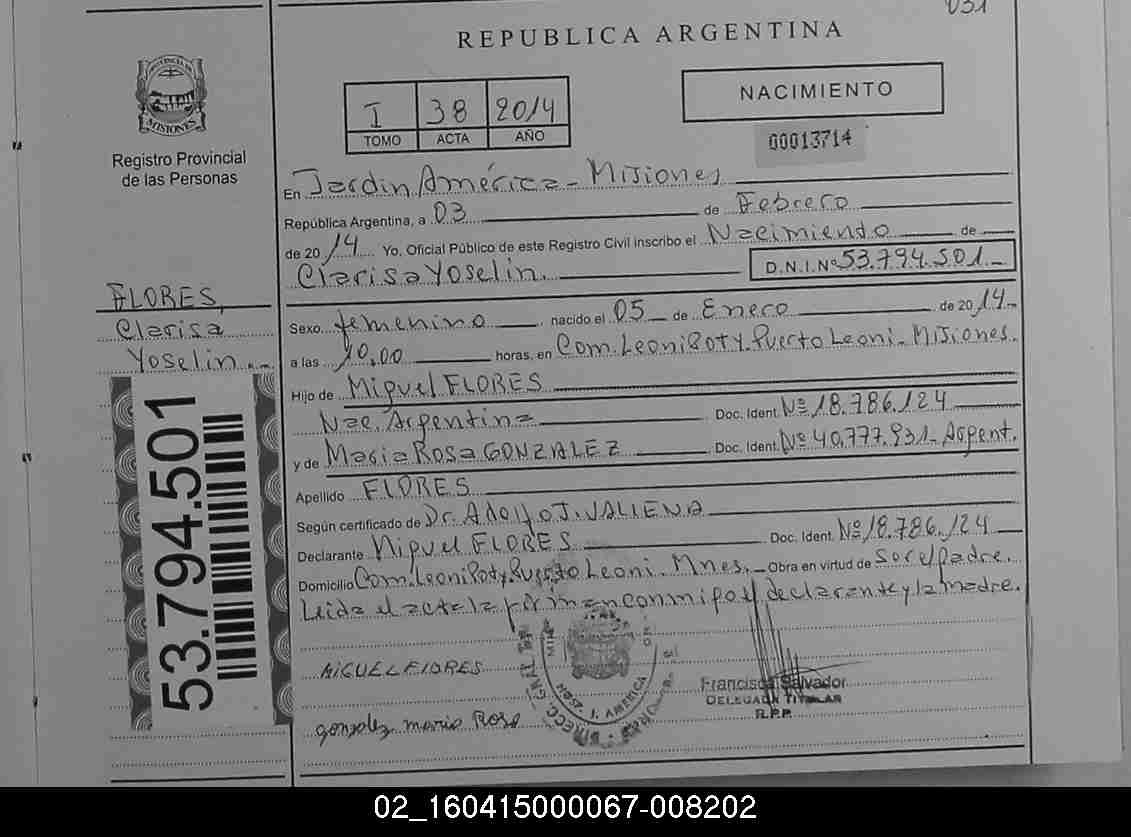 031
REPUBLICA ARGENTINA
PROVINCIA DE
MISIONES
Registro Provincial
de las Personas
I 38 2014
TOMO ACTA AÑO
NACIMIENTO
00013714
En Jardin América - Misiones
República Argentina, a 03 de Febrero
de 2014 Yo, Oficial Público de este Registro Civil inscribo el Nacimiendo de
Clarisa Yoselin. D.N.I.Nº 53.794.501
FLORES,
Clarisa
Yoselin
53.794.501
Sexo femenino nacido el 05 de Enero de 2014
a las 10,00 horas, en Com. Leoni Poty. Puerto Leoni - Misiones.
Hijo de Miguel FLORES
Nac. Argentina Doc. Ident. Nº 18.786.124
y de Maria Rosa GONZALEZ Doc. Ident. Nº 40.777.931 - Argent.
Apellido FLORES
Según certificado de Dr. Adolfo J. VALIENA
Declarante Miguel FLORES Doc. Ident. Nº 18.786.124
Domicilio Com. Leoni Poty. Puerto Leoni. Mnes. Obra en virtud de Ser el padre.
Leida el acta la firman conmigo el declarante y la madre.
MIGUEL FLORES
gonzalez maria Rosa
J. AMERICA
Francisca Salvador
DELEGADA TITULAR
R.P.P.
02_160415000067-008202